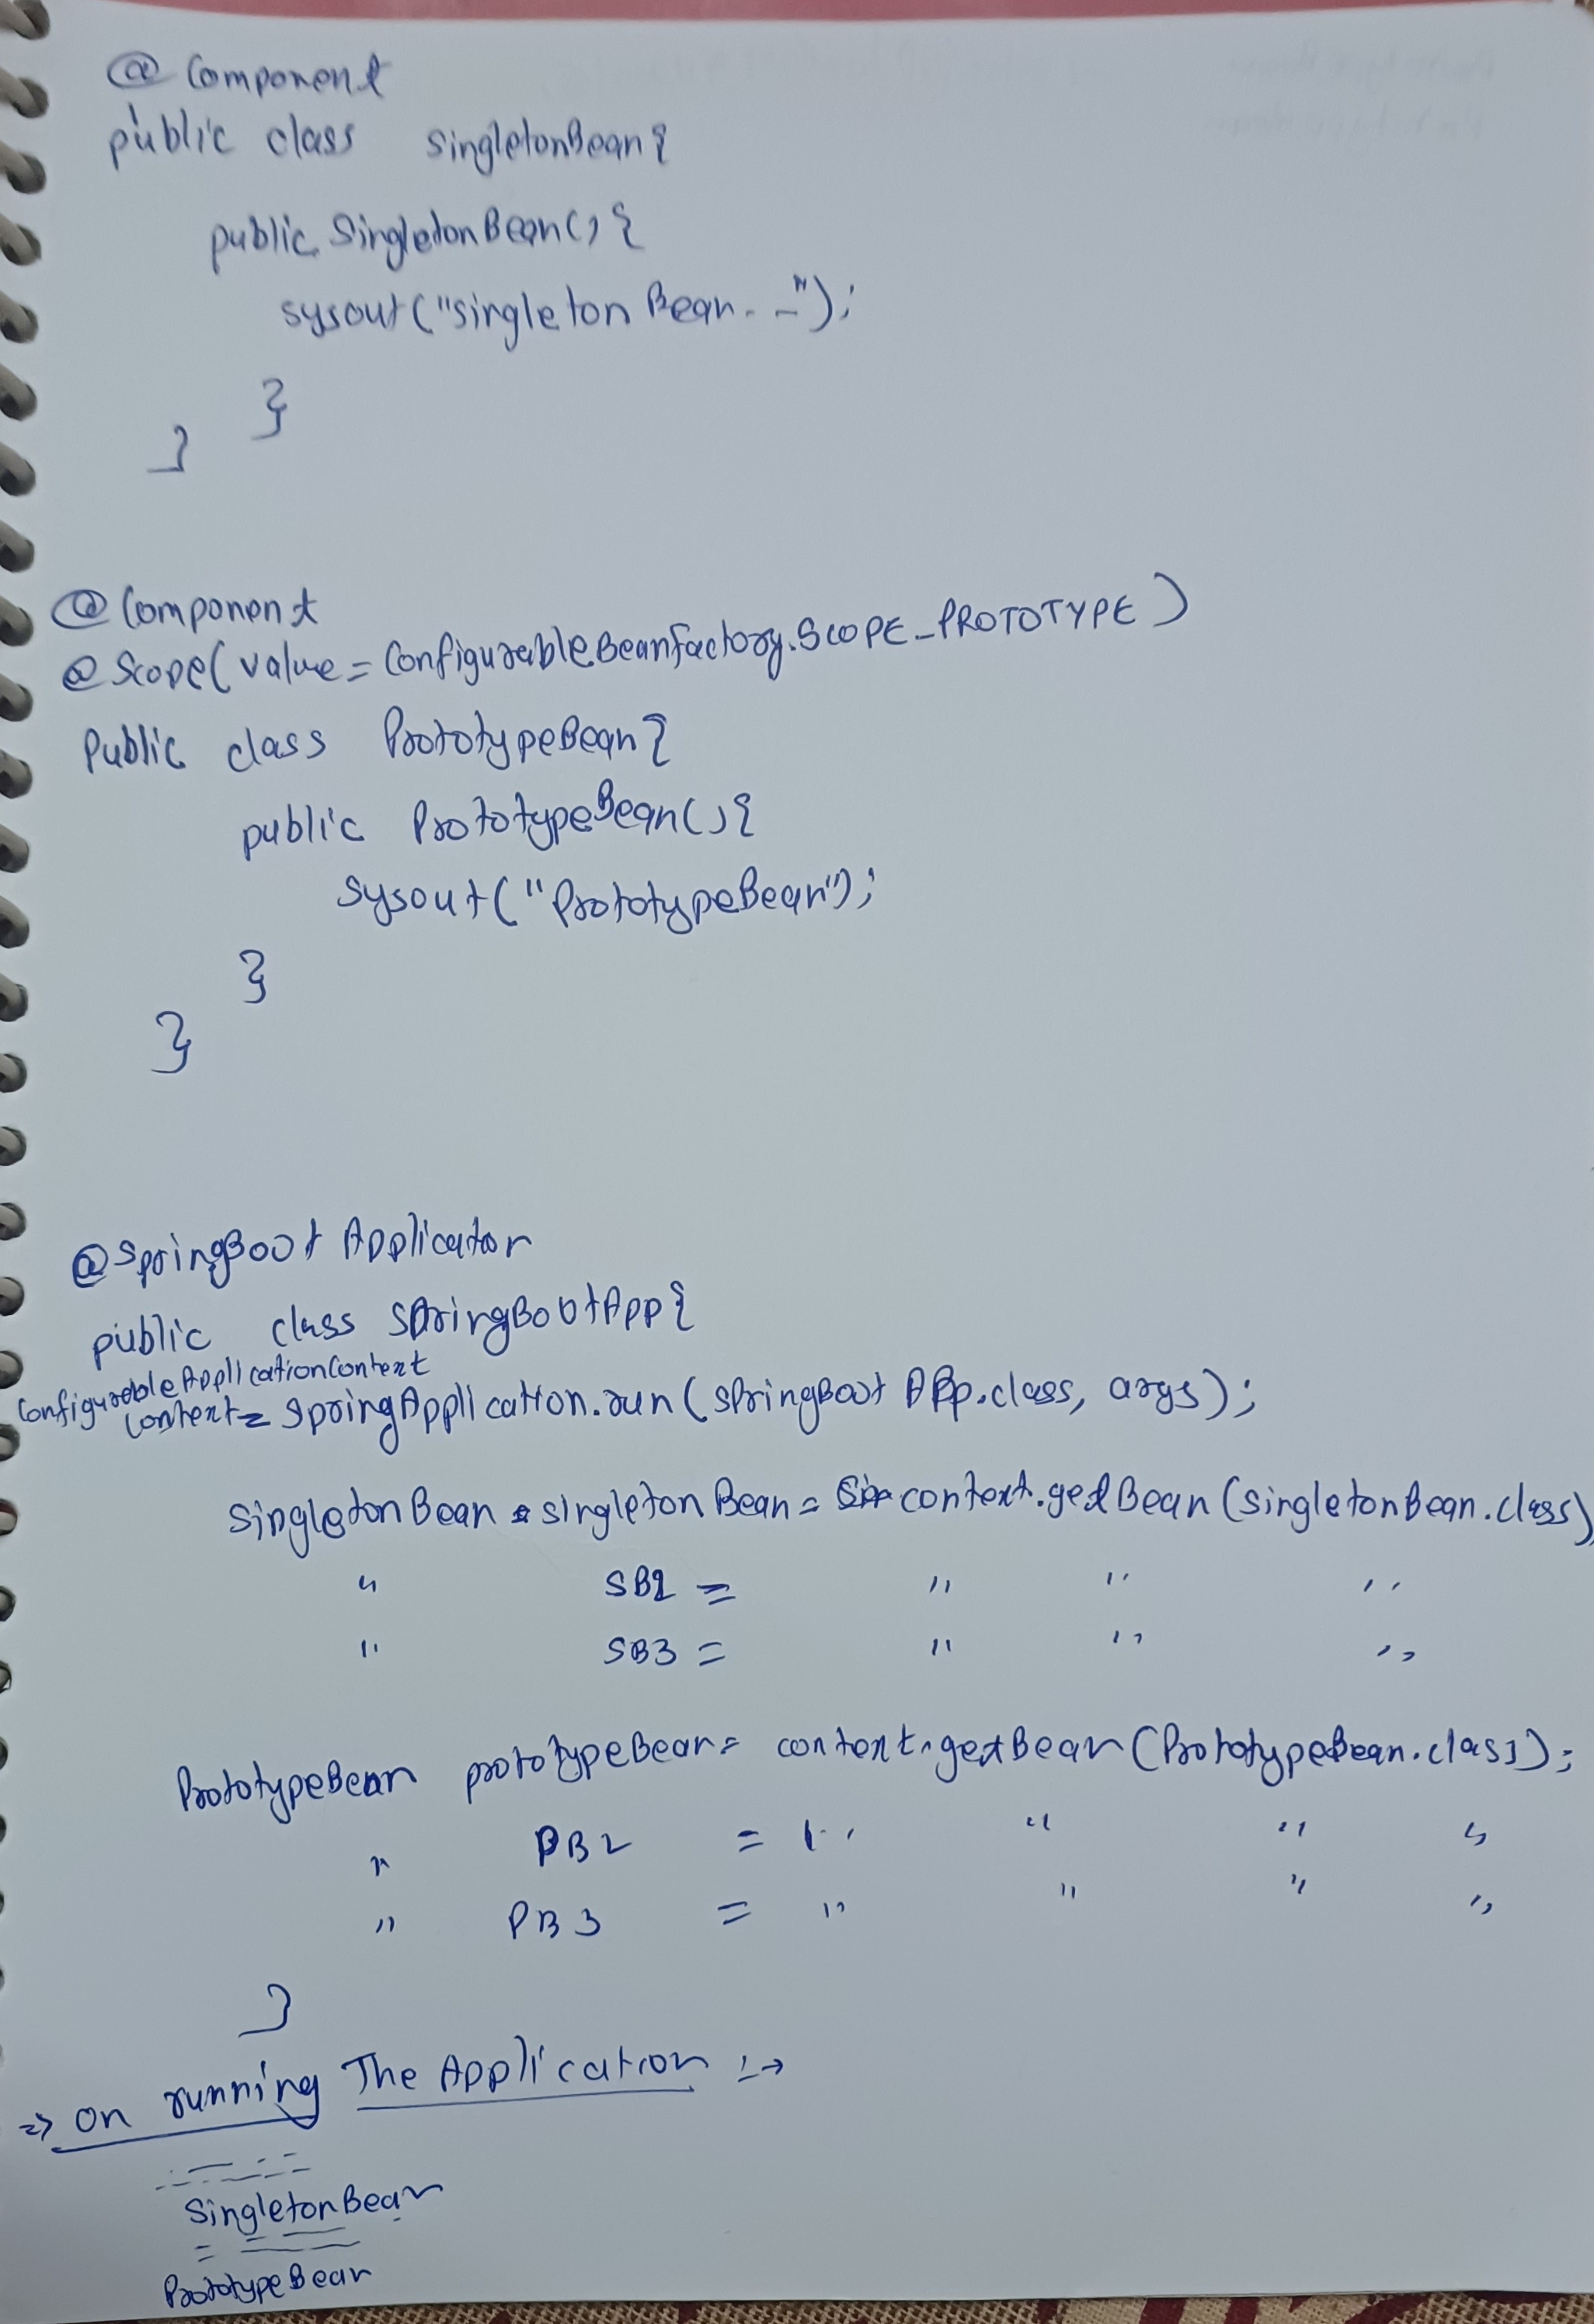 @Component
public class singletonBean{
public SingletonBean(){
sysout("singleton Bean. _");
}
}
@Component
@Scope(value = ConfigurableBeanfactory.SCOPE_PROTOTYPE)
Public class PrototypeBean{
public PrototypeBean(){
sysout("PrototypeBean");
}
}
@SpringBoot Applicaton
public class SpringBootApp{
ConfigurableApplicationContext
context = SpringApplication.run(SpringBoot App.class, args);
SingletonBean singletonBean = context.getBean(singletonBean.class)
" SB2 = " " "
" SB3 = " " "
PrototypeBean prototypeBean = context.getBean(PrototypeBean.class);
" PB2 = " " " "
" PB3 = " " " "
}
=> on running The Application :->
SingletonBean
PrototypeBean